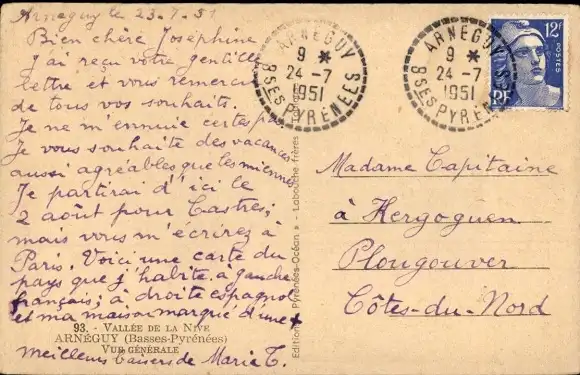 Arnéguy le 23-7-51
Bien chère Joséphine
J'ai reçu votre gentille
lettre et vous remercie
de tous vos souhaits.
Je ne m'ennuie certes pas
Je vous souhaite des vacances
aussi agréables que les miennes
Je partirai d'ici le
2 août pour Castres;
mais vous m'écrirez à
Paris. Voici une carte du
pays que j'habite, à gauche
français; à droite espagnol
et ma maison marqué d'une +
93. - VALLÉE DE LA NIVE
ARNÉGUY (Basses-Pyrénées)
VUE GÉNÉRALE
Meilleurs baisers de Marie T.
Pyrénées-Océan » - Labouche frères
ARNEGUY
9 *
24 -7
1951
BSES PYRENEES
ARNEGUY
9 *
24 -7
1951
BSES PYRENEES
12F
POSTES
RF
Madame Capitaine
à Kergoguen
Plougouver
Côtes-du-Nord